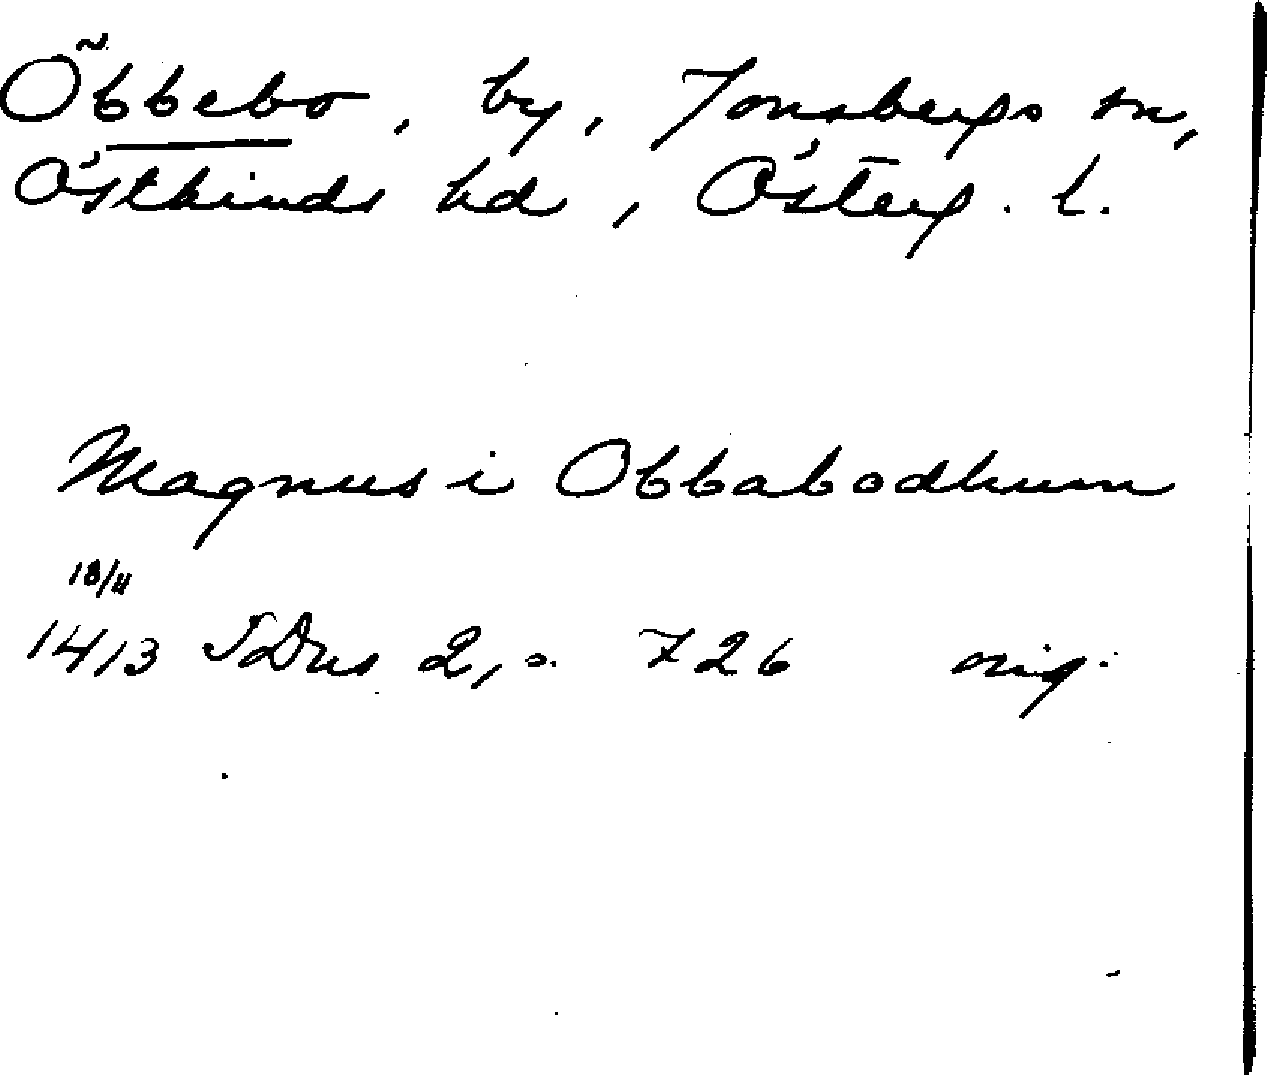 Öbbebo, by, Jonsbergs sn,
Östkinds hd, Österg. l.
Magnus i Obbabodhum
18/4
1413 SDns 2, s. 726 orig.